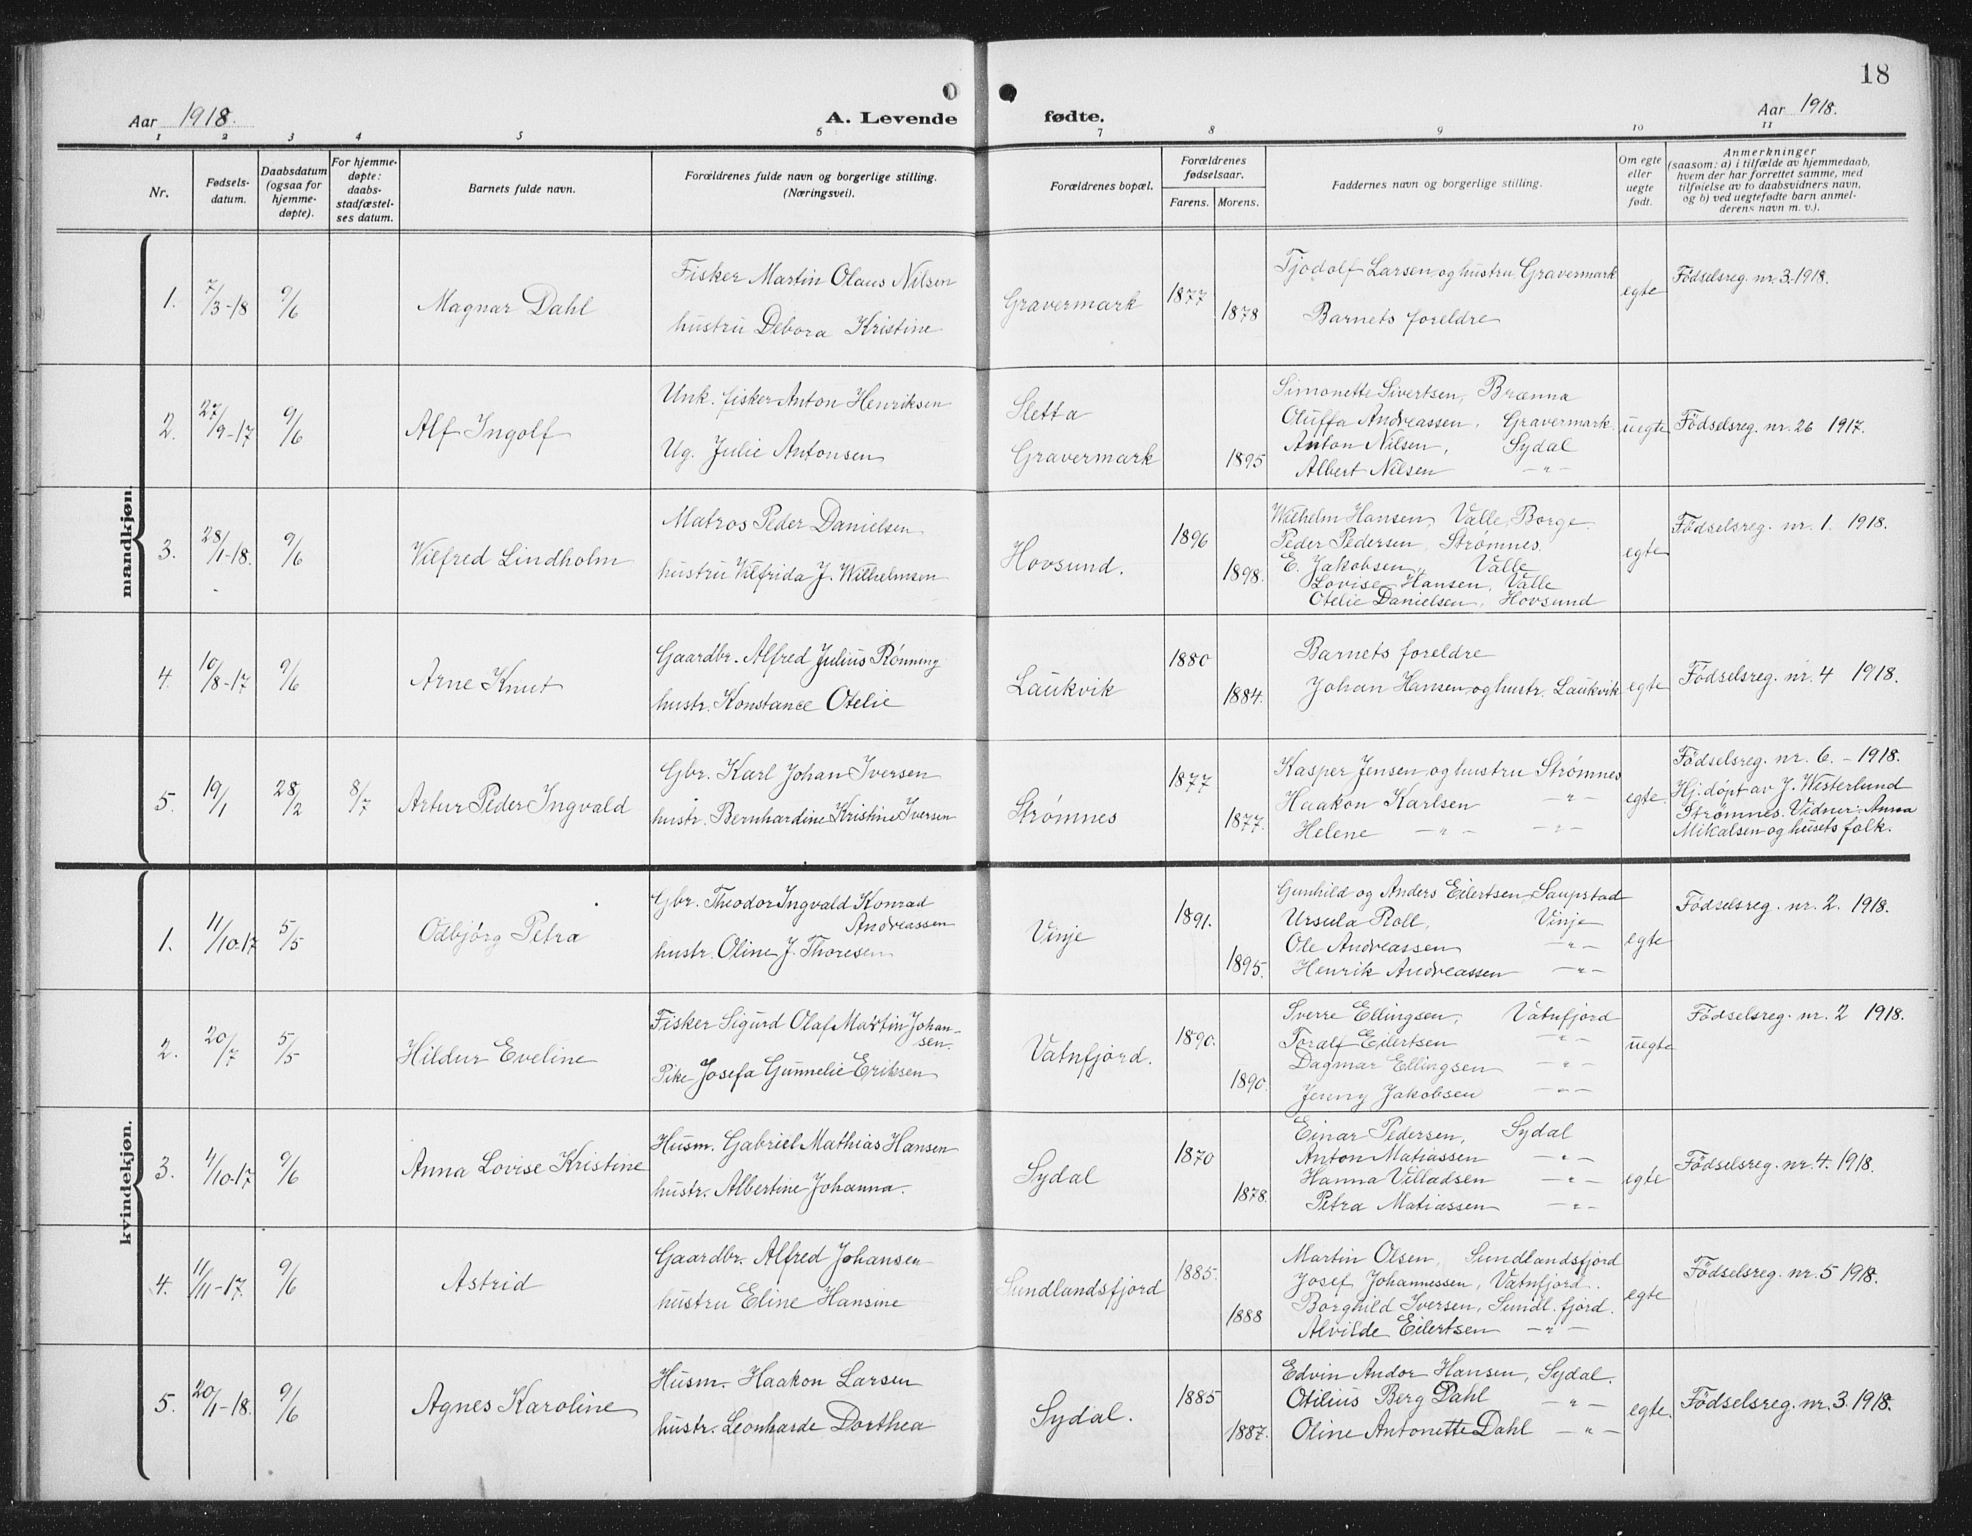 18
Aar 1918.
A. Levende fødte.
Aar 1918.
1 2 3 4 5 6 7 8 9 10 11
Nr.
Fødsels-
datum.
Daabsdatum
(ogsaa for
hjemme-
døpte).
For hjemme-
døpte:
daabs-
stadfæstel-
ses datum.
Barnets fulde navn.
Forældrenes fulde navn og borgerlige stilling.
(Næringsvei).
Forældrenes bopæl.
Forældrenes
fødselsaar.
Farens. Morens.
Faddernes navn og borgerlige stilling.
Om egte
eller
uegte
født.
Anmerkninger
(saasom: a) i tilfælde av hjemmedaab,
hvem der har forrettet samme, med
tilføielse av to daabsvidners navn,
og b) ved uegtefødte barn anmel-
derens navn m. v.).
mandkjøn.
1. 7/3-18 9/6 Magnar Dahl
Fisker Martin Olaus Nilsen
hustru Debora Kristine
Gravermark 1877 1878
Tjodolf Larsen og hustru, Gravermark
Barnets foreldre
egte
Fødselsreg. nr. 3. 1918.
2. 27/9-17 9/6 Alf Ingolf
Unk. fisker Anton Henriksen
Ug. Julie Antonsen
Sletta
Gravermark 1895
Simonette Sivertsen, Brænna
Oluffa Andreassen, Gravermark.
Anton Nilsen, Sydal
Albert Nilsen -"-
uegte
Fødselsreg. nr. 26 1917.
3. 28/1-18. 9/6 Vilfred Lindholm
Matros Peder Danielsen
hustru Vilfrida J. Wilhelmsen
Hovsund. 1896 1898.
Wilhelm Hansen, Valle, Borge.
Peder Pedersen, Strømnes.
E. Jakobsen, Valle
Lovise Hansen, Valle
Otelie Danielsen, Hovsund
egte
Fødselsreg. nr. 1. 1918.
4. 10/8-17 9/6 Arne Knut
Gaardbr. Alfred Julius Rønning
hustr. Konstance Otelie
Laukvik 1880 1884.
Barnets foreldre
Johan Hansen og hustr. Laukvik
egte
Fødselsreg. nr. 4 1918.
5. 19/1 28/2 8/7 Artur Peder Ingvald
Gbr. Karl Johan Iversen
hustr. Bernhardine Kristine Iversen
Strømnes 1877 1877.
Kasper Jensen og hustru Strømnes
Haakon Karlsen -"-
Helene -"- -"-
egte.
Fødselsreg. nr. 6. - 1918.
Hj. døpt av J. Westerlund
Strømnes. Vidner: Anna
Mikalsen og husets folk.
kvindekjøn.
1. 11/10-17 5/5 Odbjørg Petra
Gbr. Theodor Ingvald Konrad
Andreassen
hustr. Oline J. Thoresen
Vinje 1891. 1895.
Gunhild og Anders Eilertsen, Saupstad
Ursula Roll, Vinje
Ole Andreassen -"-
Henrik Andreassen -"-
egte
Fødselsreg. nr. 2. 1918.
2. 20/7 5/5 Hildur Eveline
Fisker Sigurd Olaf Martin Johan-
sen.
Pike Josefa Gunnelie Eriksen
Vatnfjord. 1890. 1890.
Sverre Ellingsen, Vatnfjord
Toralf Eilertsen -"-
Dagmar Ellingsen -"-
Jenny Jakobsen -"-
uegte
Fødselsreg. nr. 2 1918.
3. 4/10-17 9/6 Anna Lovise Kristine
Husm. Gabriel Mathias Hansen
hustr. Albertine Johanna.
Sydal 1870 1878.
Einar Pedersen, Sydal
Anton Matiassen -"-
Hanna Villadsen -"-
Petra Matiassen -"-
egte
Fødselsreg. nr. 4. 1918.
4. 11/11-17. 9/6 Astrid
Gaardbr. Alfred Johansen
hustru Eline Hansine
Sundlandsfjord 1885. 1888
Martin Olsen, Sundlandsfjord
Josef Johannessen, Vatnfjord.
Borghild Iversen, Sundl.fjord.
Alvilde Eilertsen -"-
egte
Fødselsreg. nr. 5 1918.
5. 20/1-18. 9/6 Agnes Karoline
Husm. Haakon Larsen
hustr. Leonharde Dorthea
Sydal. 1885 1887.
Edvin Andor Hansen, Sydal.
Otilius Berg Dahl -"-
Oline Antonette Dahl -"-
egte.
Fødselsreg. nr. 3. 1918.